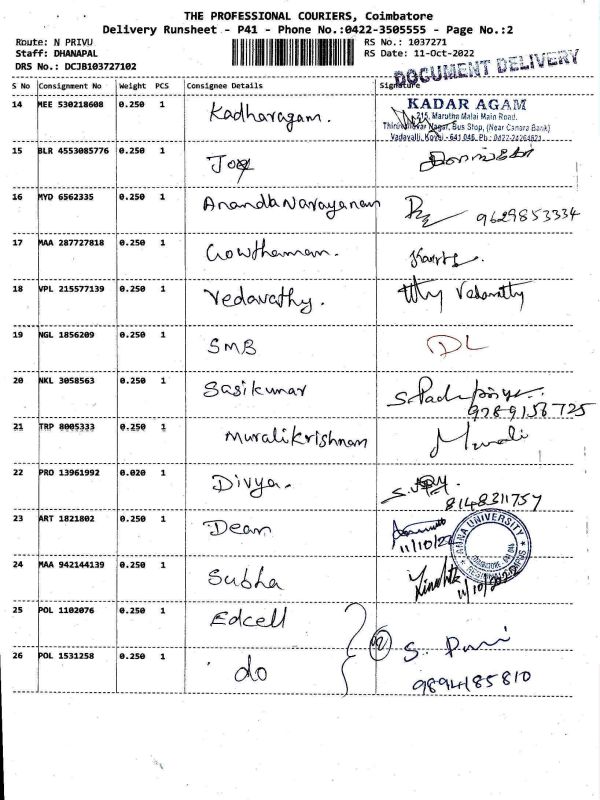 THE PROFESSIONAL COURIERS, Coimbatore
Delivery Runsheet - P41 - Phone No.:0422-3505555 - Page No.:2
Route: N PRIVU
RS No.: 1037271
Staff: DHANAPAL
RS Date: 11-Oct-2022
DRS No.: DCJB103727102
DOCUMENT DELIVERY
S No Consignment No Weight PCS Consignee Details Signature
14 MEE 530218608 0.250 1 Kadharagam.
KADAR AGAM
215, Marutha Malai Main Road,
Nagar, Bus Stop, (Near Canara Bank)
Vadavalli, Kovai - 641 046. Ph : 0422-
15 BLR 4553085776 0.250 1 Joy
16 MYD 6562335 0.250 1 Ananda Narayanan 9629853334
17 MAA 287727818 0.250 1 Gowthaman.
18 VPL 215577139 0.250 1 Vedavathy. Vedavathy
19 NGL 1856209 0.250 1 SMB DL
20 NKL 3058563 0.250 1 Sasikumar
9789156725
21 TRP 8005333 0.250 1 Muralikrishnan Murali
22 PRO 13961992 0.020 1 Divya.
8148311757
23 ART 1821802 0.250 1 Dean 11/10/22
ANNA UNIVERSITY
24 MAA 942144139 0.250 1 Subha 11/10/2022
25 POL 1102076 0.250 1 Edcell
26 POL 1531258 0.250 1 do
9894185810